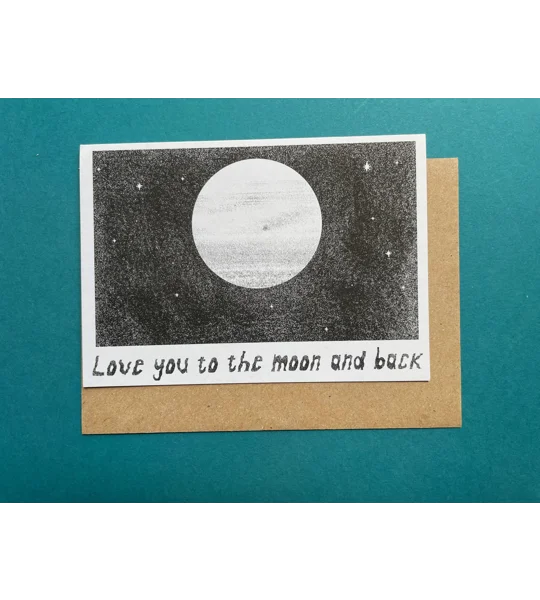 Love you to the moon and back